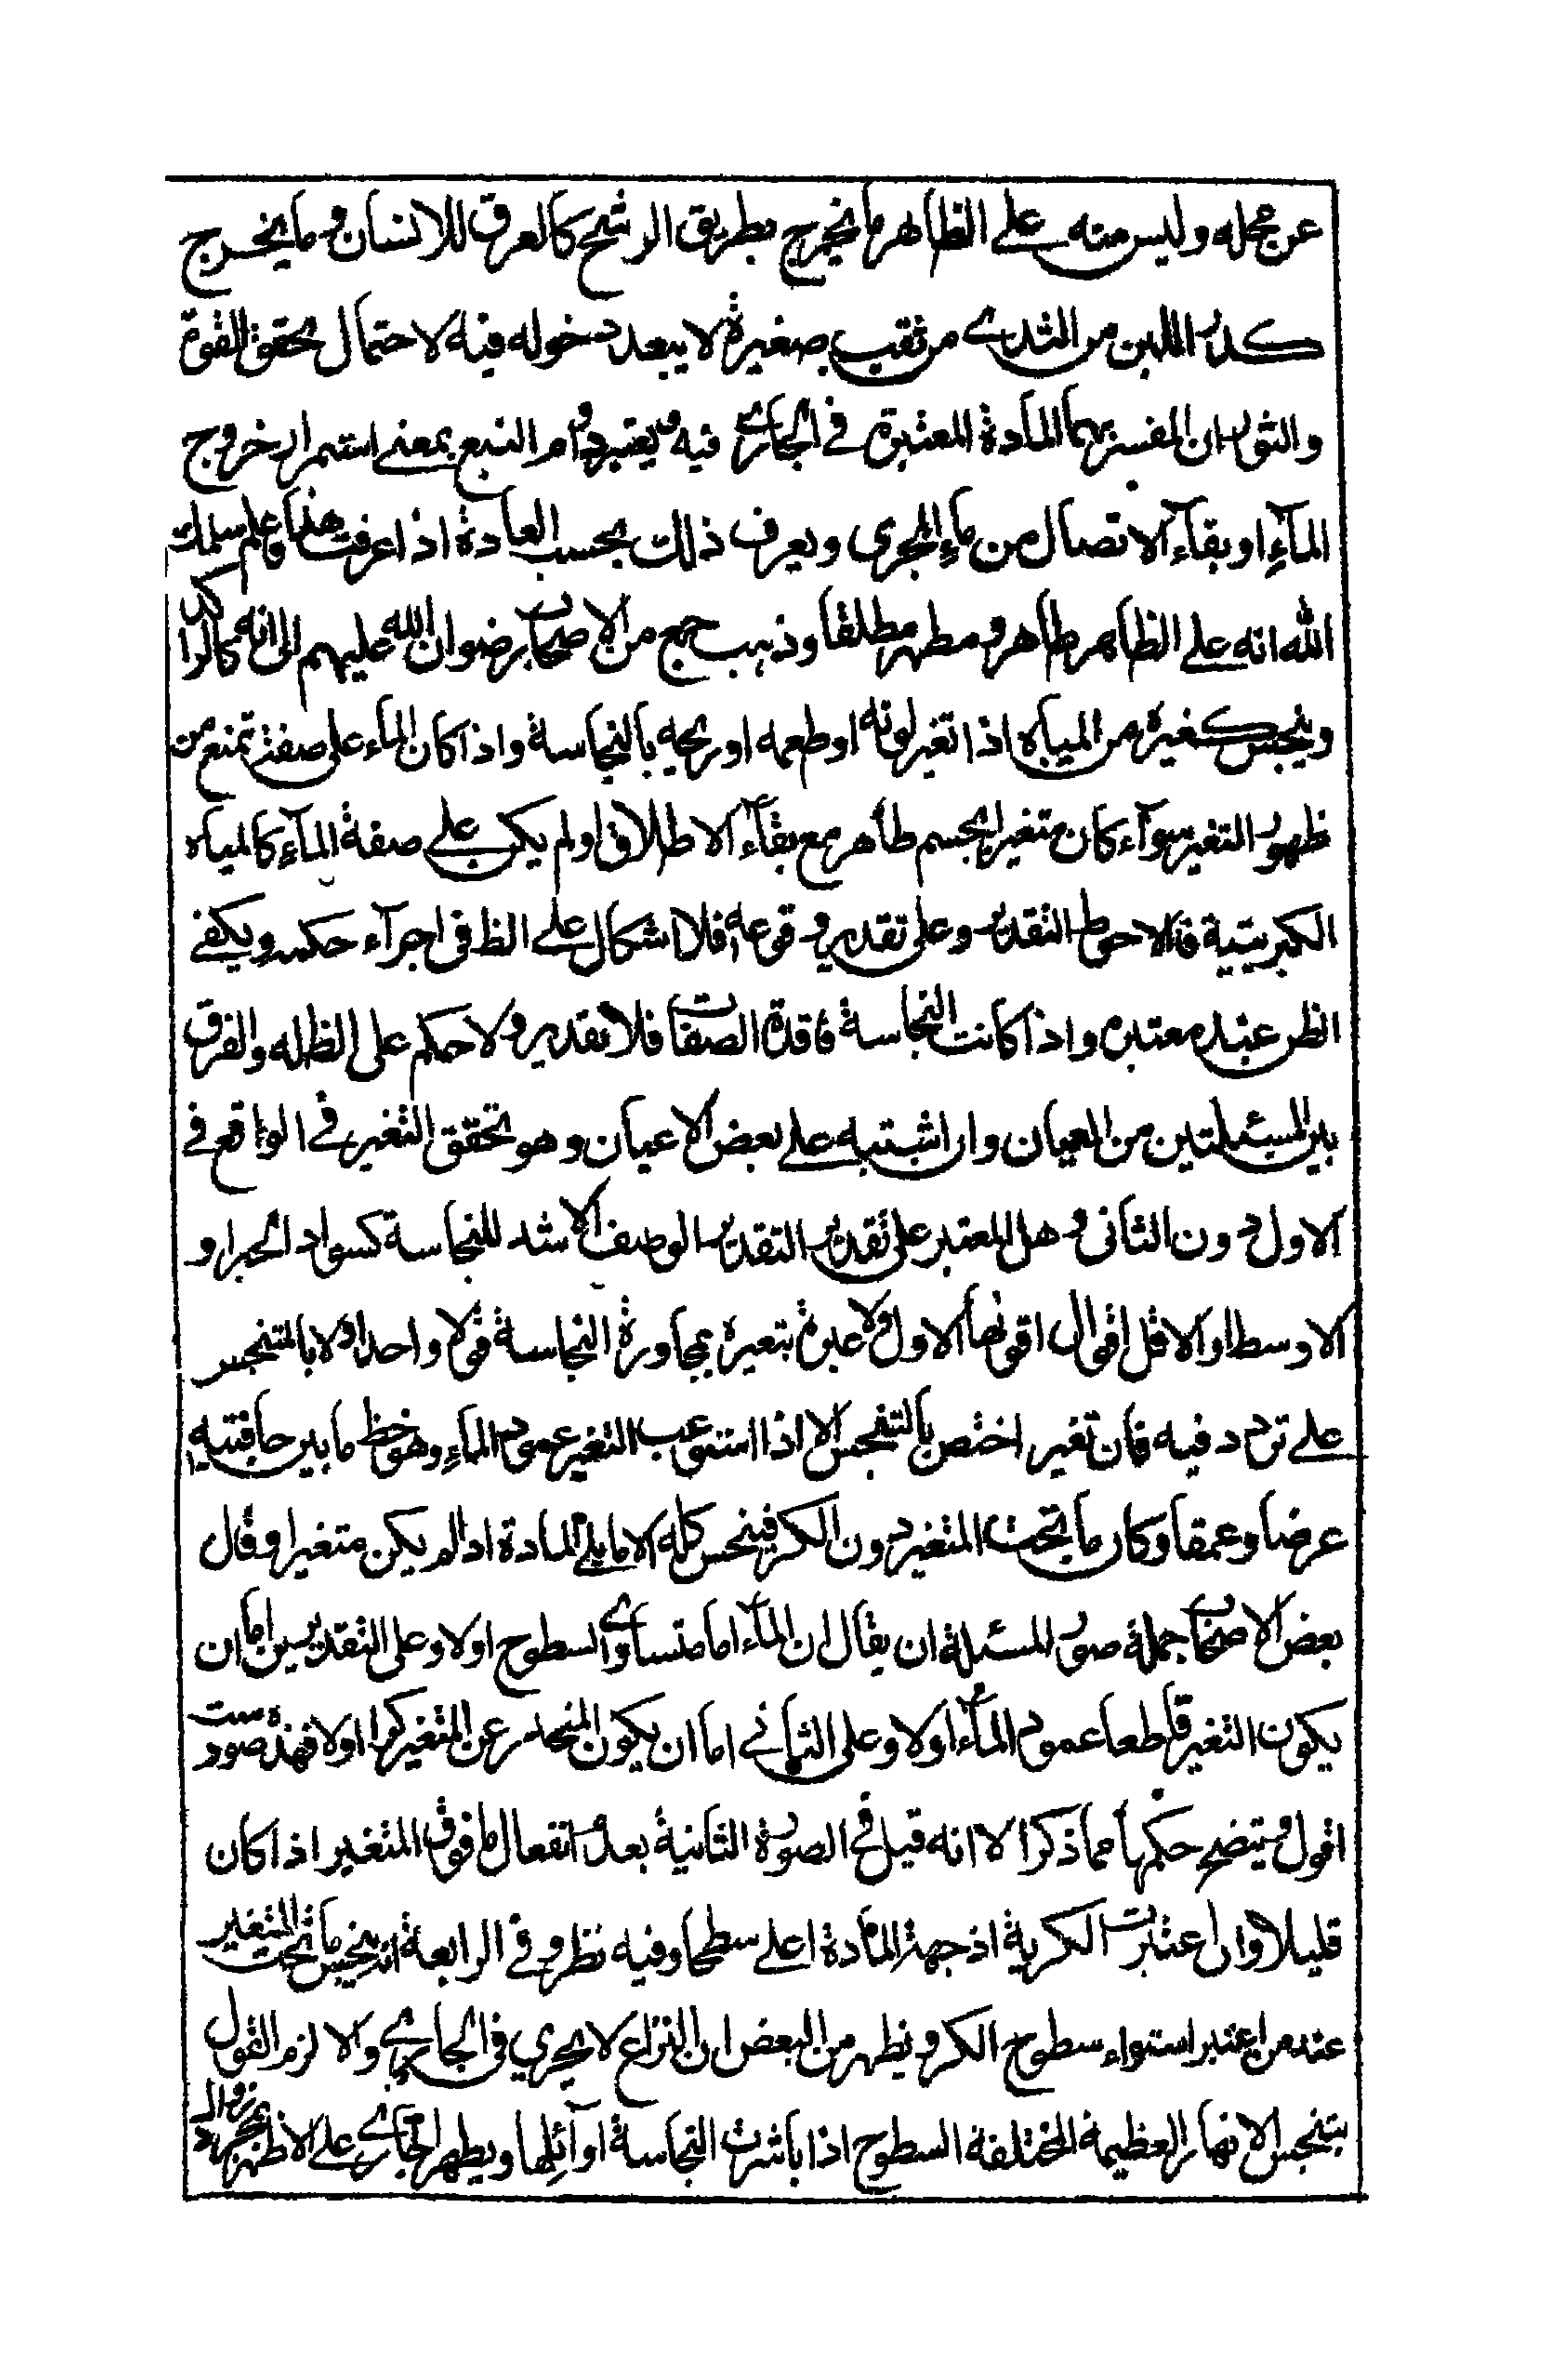 عن محله وليس منه على الظاهر ما يخرج بطريق الرشح كالعرق للانسان وما يخرج
كدر اللبن من الثدى من ثقب صغيرة لا يبعد دخوله فيه لاحتمال تحقق القوة
والثوران المفسر بهما المادة المعتبرة في الجارى فيه ويعتبر دوام النبع بمعنى استمرار خروج
المآء او بقآء الاتصال من ماء المجرى ويعرف ذلك بحسب العادة اذا عرفت هذا فاعلم سلمك
الله انه على الظاهر طاهر ومطهر مطلقا وذهب جمع من الاصحاب رضوان الله عليهم الى انه كالراكد
وينجس كغيره من المياه اذا تغير لونه او طعمه او ريحه بالنجاسة واذا كان الماء على صفة تمنع من
ظهور التغير سوآء كان متغيرا بجسم طاهر مع بقآء الاطلاق او لم يكن على صفة المآء كالمياه
الكبريتية فالاحوط التقدير وعلى تقدير وقوعه فلا اشكال على الظ فى اجرآء حكمه ويكفى
الظن عند معتبره واذا كانت النجاسة فاقدة الصفات فلا تقدير ولا حكم على الظ له والفرق
بين المسئلتين من العيان وان اشتبه على بعض الاعيان وهو تحقق التغير في الواقع في
الاول دون الثانى وهل المعتبر على تقدير التقدير الوصف الاشد للنجاسة كسواد الحبر او
الاوسط او الاقل اقوال اقويها الاول ولا عبرة بتغيره بمجاورة النجاسة قولا واحدا ولا بالمتنجس
على تردد فيه فان تغير اختص بالتنجس الا اذا استوعب التغير عمود الماء وهو خط ما بين حافتيه
عرضا وعمقا وكان ما تحت المتغير دون الكر فينجس كله الا ما يلى المادة اذا لم يكن متغيرا وقال
بعض الاصحاب جملة صور المسئلة ان يقال ان المآء اما متساوى السطوح اولا وعلى التقديرين اما ان
يكون التغير قاطعا عمود المآء اولا وعلى الثانى اما ان يكون المنحدر عن المتغير كرا اولا فهذه صور ست
اقول ويتضح حكمها مما ذكر الا انه قيل في الصورة الثانية بعدم انفعال ما فوق المتغير اذا كان
قليلا وان اعتبرت الكرية اذ جهة المادة اعلى سطحا وفيه نظر وفي الرابعة انه ينجس ما تحت المتغير
عند من اعتبر استواء سطوح الكر ويظهر من البعض ان النزاع لا يجري فى الجارى والا لزم القول
بتنجس الانهار العظيمة المختلفة السطوح اذا باشرت النجاسة اوآئلها ويطهر الجارى على الاظهر بمجرد زوال